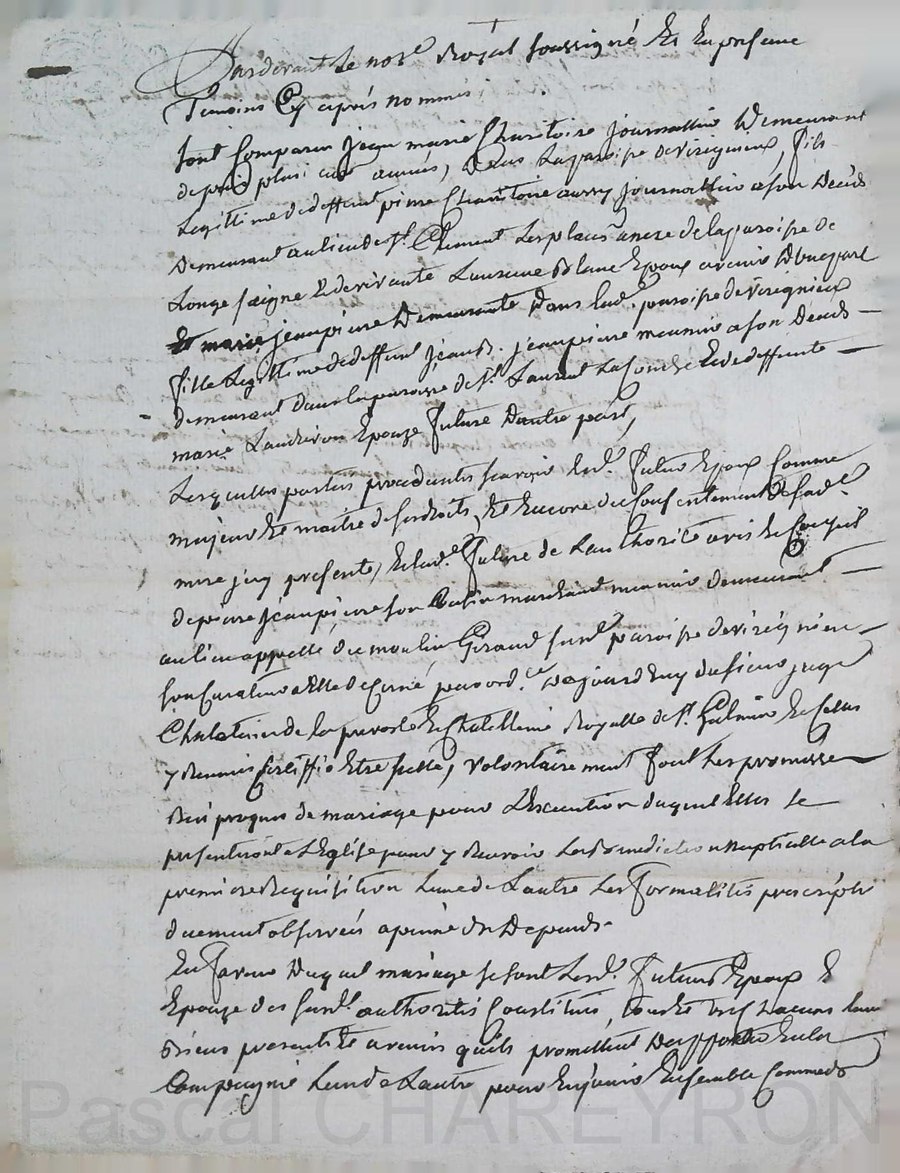 Pardevant le not.e Royal soussigné Et En presence
Temoins Cy apres nommés
sont Comparu jean marie Charitoire journallier Demeurant
depuis plusieurs années, Dans La paroisse de virigneux, fils
Legittime de deffunt pierre Charitoire aussy journallier a son Decés
Demeurant au lieu de st. Clement Les places de la paroisse de
Longe saigne Et de vivante Laurence Blanc Epoux avenir D'une part
Et marie jeanpierre Demeurante Dans lad.e paroisse de virigneux
fille Legittime de deffunt jean jeanpierre meusnier a son Decés
demeurant dans la paroisse de st. Laurent La Conche Et de deffunte
marie Epouze future D'autre part,
Lesquelles parties procedantes sçavoir led.t futur Epoux Comme
majeur Et maitre de ses droits, Et Encore du Consentement De sad.e
mere jcy presente, Et lad.e future de L'authorité avis Et Conseil
de pierre jeanpierre son marchand meunier demeurant
au lieu appellé du moulin Giraud susd.e paroisse de virigneu
son Curateur a Elle decerné par ord.ce De ce jourd'huy du sieur juge
Chatelain de la prevosté Et Chatellenie Royalle de st. Galmier
y Etre faitte, volontairement font Les promesses
Reciproques de mariage pour L'Execution duquel Elles se
presenteront a L'Eglise pour y Recevoir La Benediction nuptialle a la
premiere Requisition L'une de L'autre Les formalités prescriptes
duement observées a peine de Depends.
En faveur Duquel mariage se sont Lesd.ts futurs Epoux Et
Epouze des susd.es authorités Constitués, tous Et Un chacuns leurs
Biens presents Et avenirs qu'ils promettent D'apporter En la
Compagnie L'un de L'autre pour En jouir Ensemble Commeds
Pascal CHAREYRON